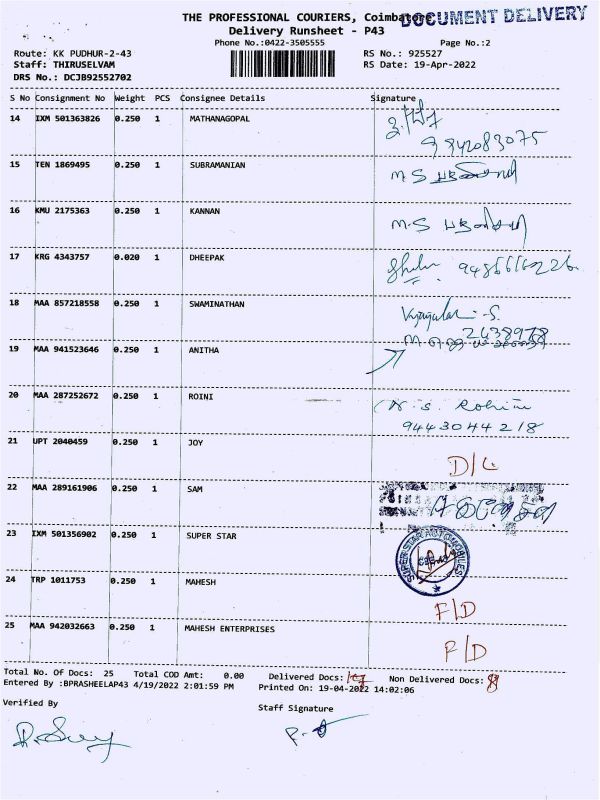 THE PROFESSIONAL COURIERS, Coimbatore
DOCUMENT DELIVERY
Delivery Runsheet - P43
Phone No.:0422-3505555 Page No.:2
Route: KK PUDHUR-2-43 RS No.: 925527
Staff: THIRUSELVAM RS Date: 19-Apr-2022
DRS No.: DCJB92552702
S No Consignment No Weight PCS Consignee Details Signature
14 IXM 501363826 0.250 1 MATHANAGOPAL
9842083075
15 TEN 1869495 0.250 1 SUBRAMANIAN M.S
16 KMU 2175363 0.250 1 KANNAN M.S
17 KRG 4343757 0.020 1 DHEEPAK
18 MAA 857218558 0.250 1 SWAMINATHAN
2438978
19 MAA 941523646 0.250 1 ANITHA
20 MAA 287252672 0.250 1 ROINI N.S. Rohini
9443044218
21 UPT 2040459 0.250 1 JOY D/L
22 MAA 289161906 0.250 1 SAM
23 IXM 501356902 0.250 1 SUPER STAR SUPER STAR AUTOMOBILES
24 TRP 1011753 0.250 1 MAHESH F/D
25 MAA 942032663 0.250 1 MAHESH ENTERPRISES F/D
Total No. Of Docs: 25 Total COD Amt: 0.00 Delivered Docs: 17 Non Delivered Docs: 8
Entered By :BPRASHEELAP43 4/19/2022 2:01:59 PM Printed On: 19-04-2022 14:02:06
Verified By Staff Signature